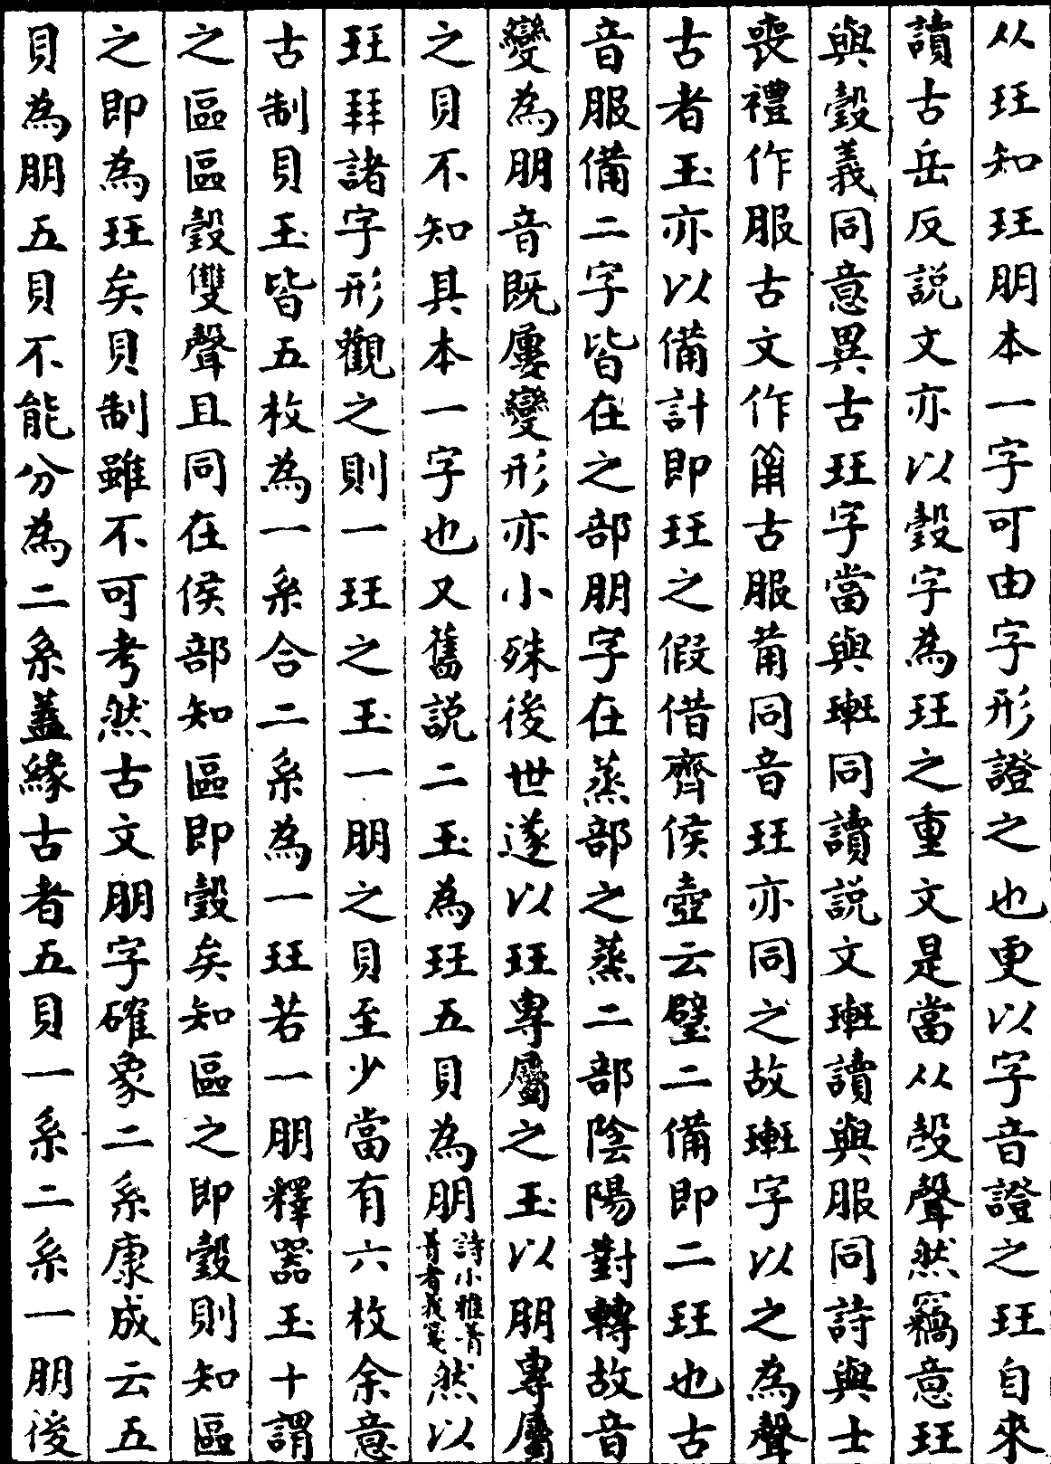 从玨知玨朋本一字可由字形證之也更以字音證之玨自來
讀古岳反説文亦以瑴字為玨之重文是當从㱿聲然竊意玨
與瑴義同意異古玨字當與㻎同讀説文㻎讀與服同詩與士
喪禮作服古文作𤰈古服𤰈同音玨亦同之故㻎字以之為聲
古者玉亦以備計即玨之假借齊侯壺云璧二備即二玨也古
音服備二字皆在之部朋字在蒸部之蒸二部陰陽對轉故音
變為朋音既屢變形亦小殊後世遂以玨專屬之玉以朋專屬
之貝不知其本一字也又舊説二玉為玨五貝為朋詩小雅菁菁者莪箋然以
玨拜諸字形觀之則一玨之玉一朋之貝至少當有六枚余意
古制貝玉皆五枚為一系合二系為一玨若一朋釋器玉十謂
之區區瑴雙聲且同在侯部知區即瑴矣知區之即瑴則知區
之即為玨矣貝制雖不可考然古文朋字確象二系康成云五
貝為朋五貝不能分為二系蓋緣古者五貝一系二系一朋後